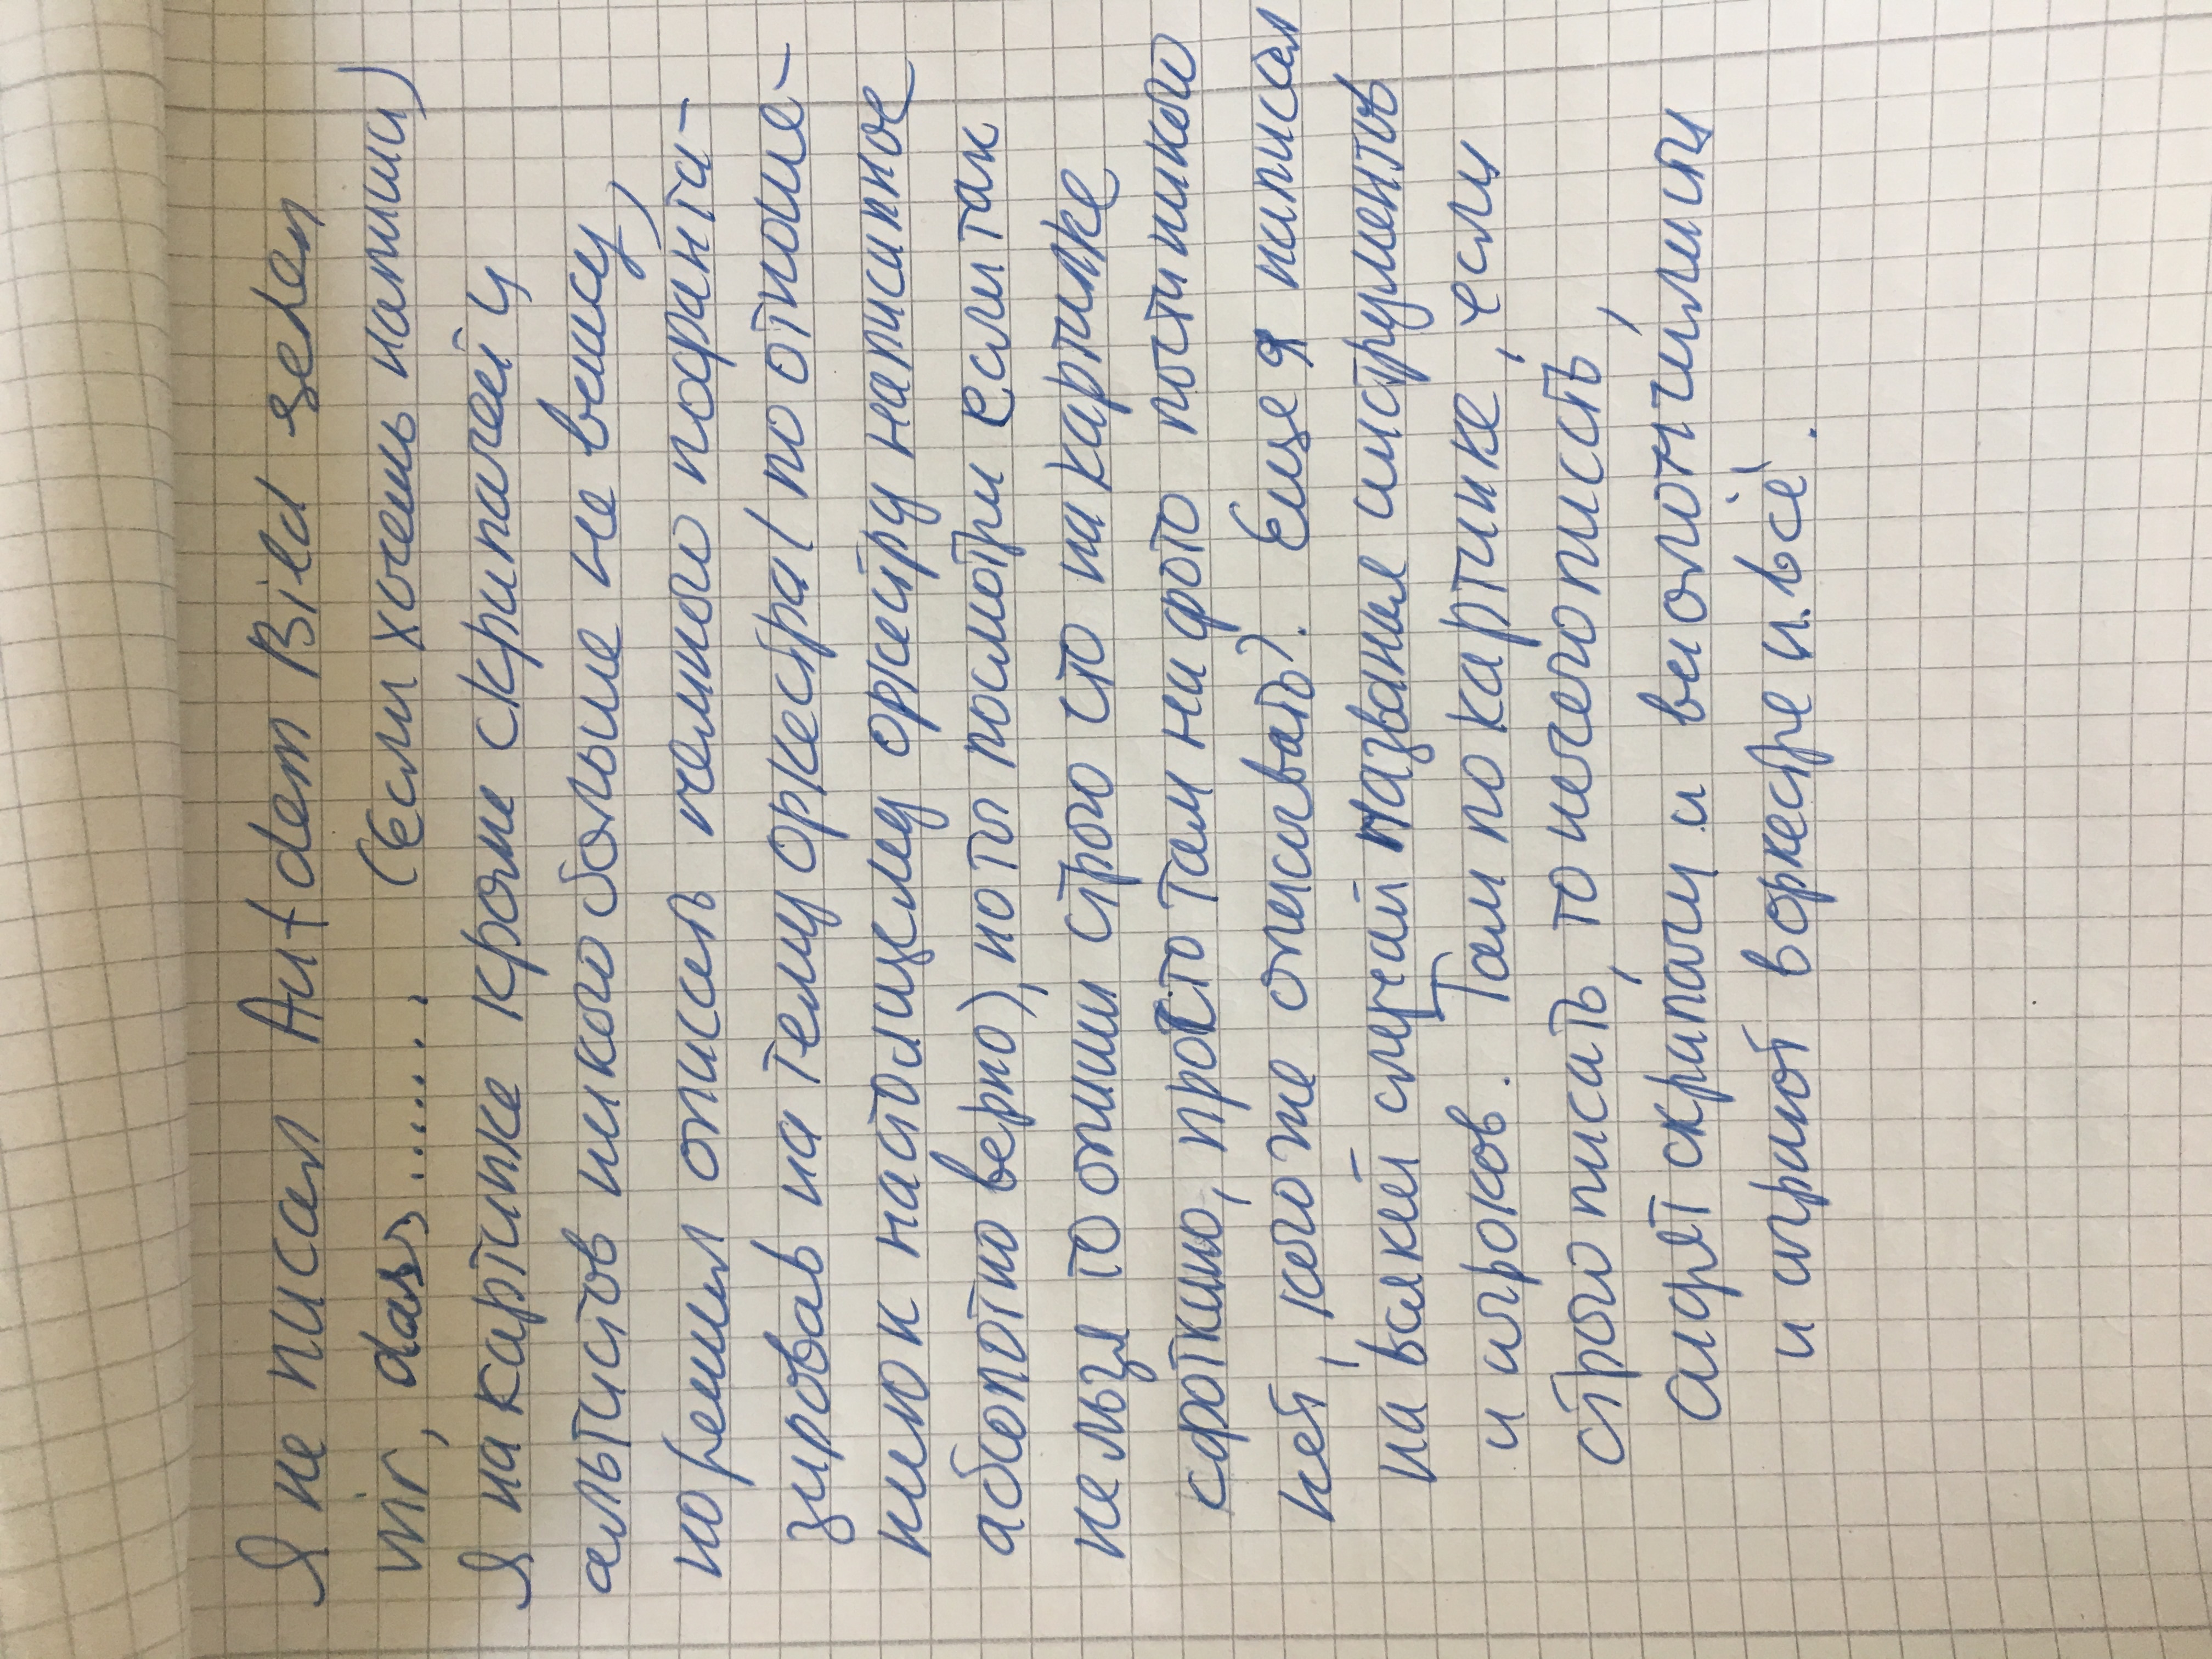 Я не писал Auf dem Bild sehen
wir, dass......... (Если хочешь напиши)
Я на картинке кроме скрипачей и
альтистов никого больше не вешу,
но решил описать немного пофанта-
зировав на тему оркестра (по отноше-
нию к настоящему оркестру написанное
абсолютно верно), но ты посмотри если так
нельзя то опиши строго сто на картинке
сфоткшо, просто там на фото почти никого
нет, кого же описивать?. Еще я написал
на всякей случай названия инструментов
и игроков. Там по картинке, если
строго писать, то нечего писать,
сидят скрипачи и виолончилисты
и играют в оркестре и. всё!.